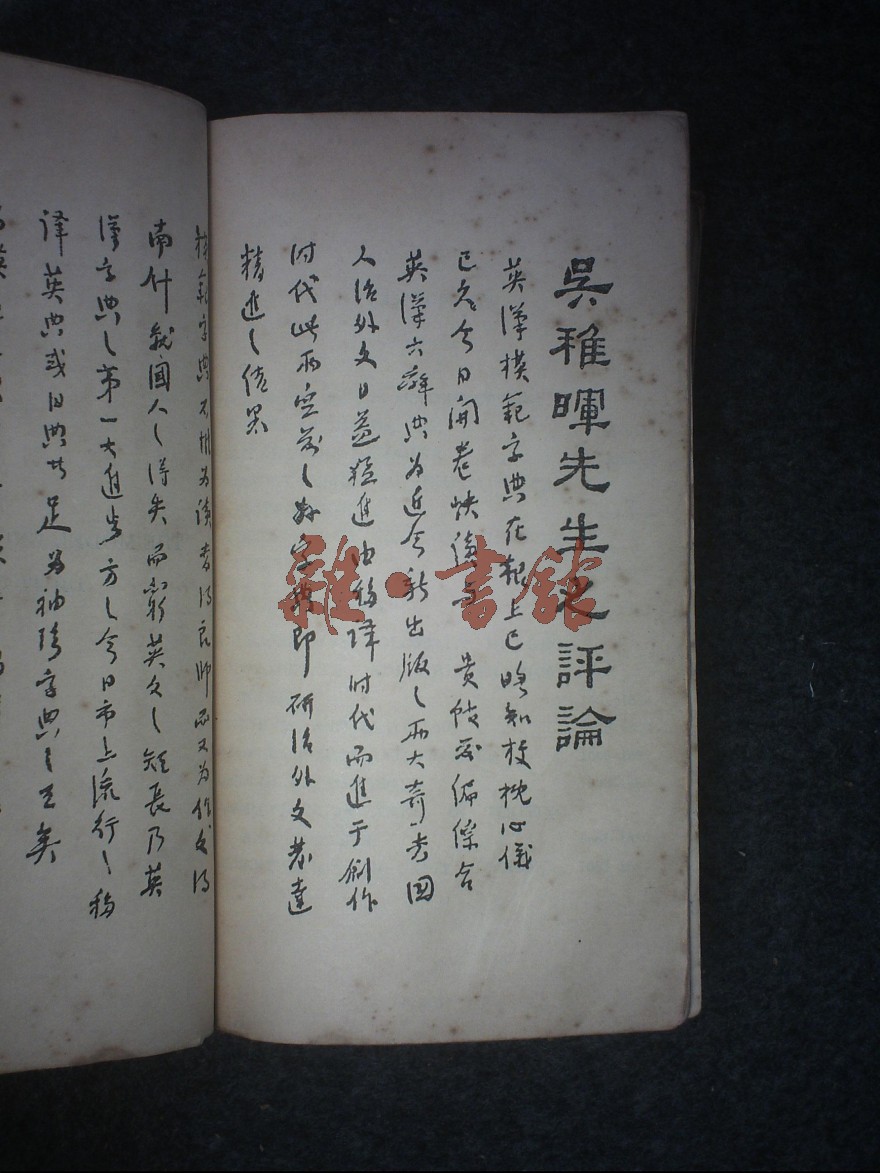 吳稚暉先生之評論
英漢模範字典在報上已略知梗概心儀
已久今日開卷快讀 貴館 編係合
英漢六辭典為近今新出版之兩大奇書國
人治外文日益猛進由移譯時代而進于創作
时代此兩空前之好字典即研治外文者達
精進之結果
模範字典不惟為讀者得良師而又為作文得
南針就國人之得失而窮英文之短長乃英
漢字典之第一大進步方之今日市上流行之移
譯英典或日典者足為袖珍字典之王矣
雜·書館